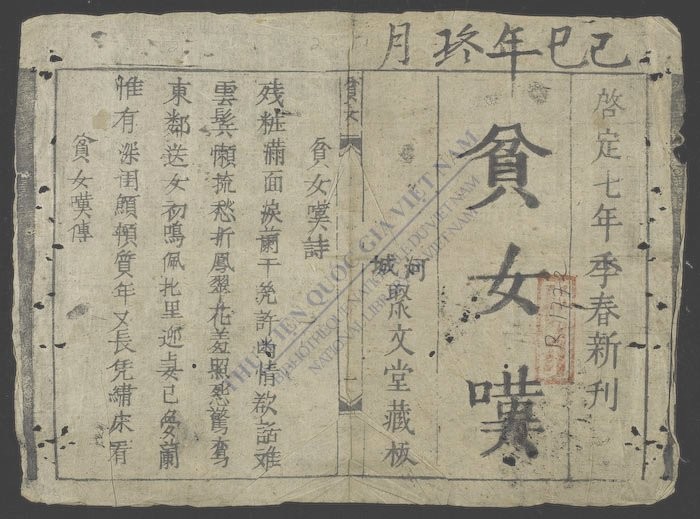 己巳年玖月
啓定七年季春新刊
貧女嘆
河城
聚文堂藏板
貧女
貧女嘆詩
残粧滿面淚蘭干 許幽情欲話难
雲髩懶梳愁折鳳翠花羞照恐驚鸞
東鄰送女初鳴佩北里迎妻已夢蘭
惟有深閨顦顇質年又長凭繡床看
貧女嘆傳
THƯ VIỆN QUỐC GIA VIỆT NAM
BIBLIOTHÈQUE NATIONALE DU VIETNAM
NATIONAL LIBRARY OF VIETNAM